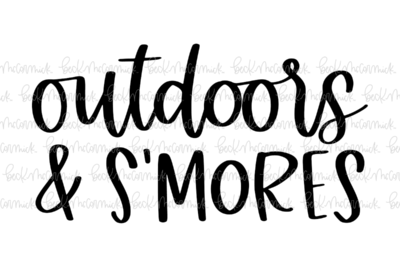 outdoors
& S'MORES